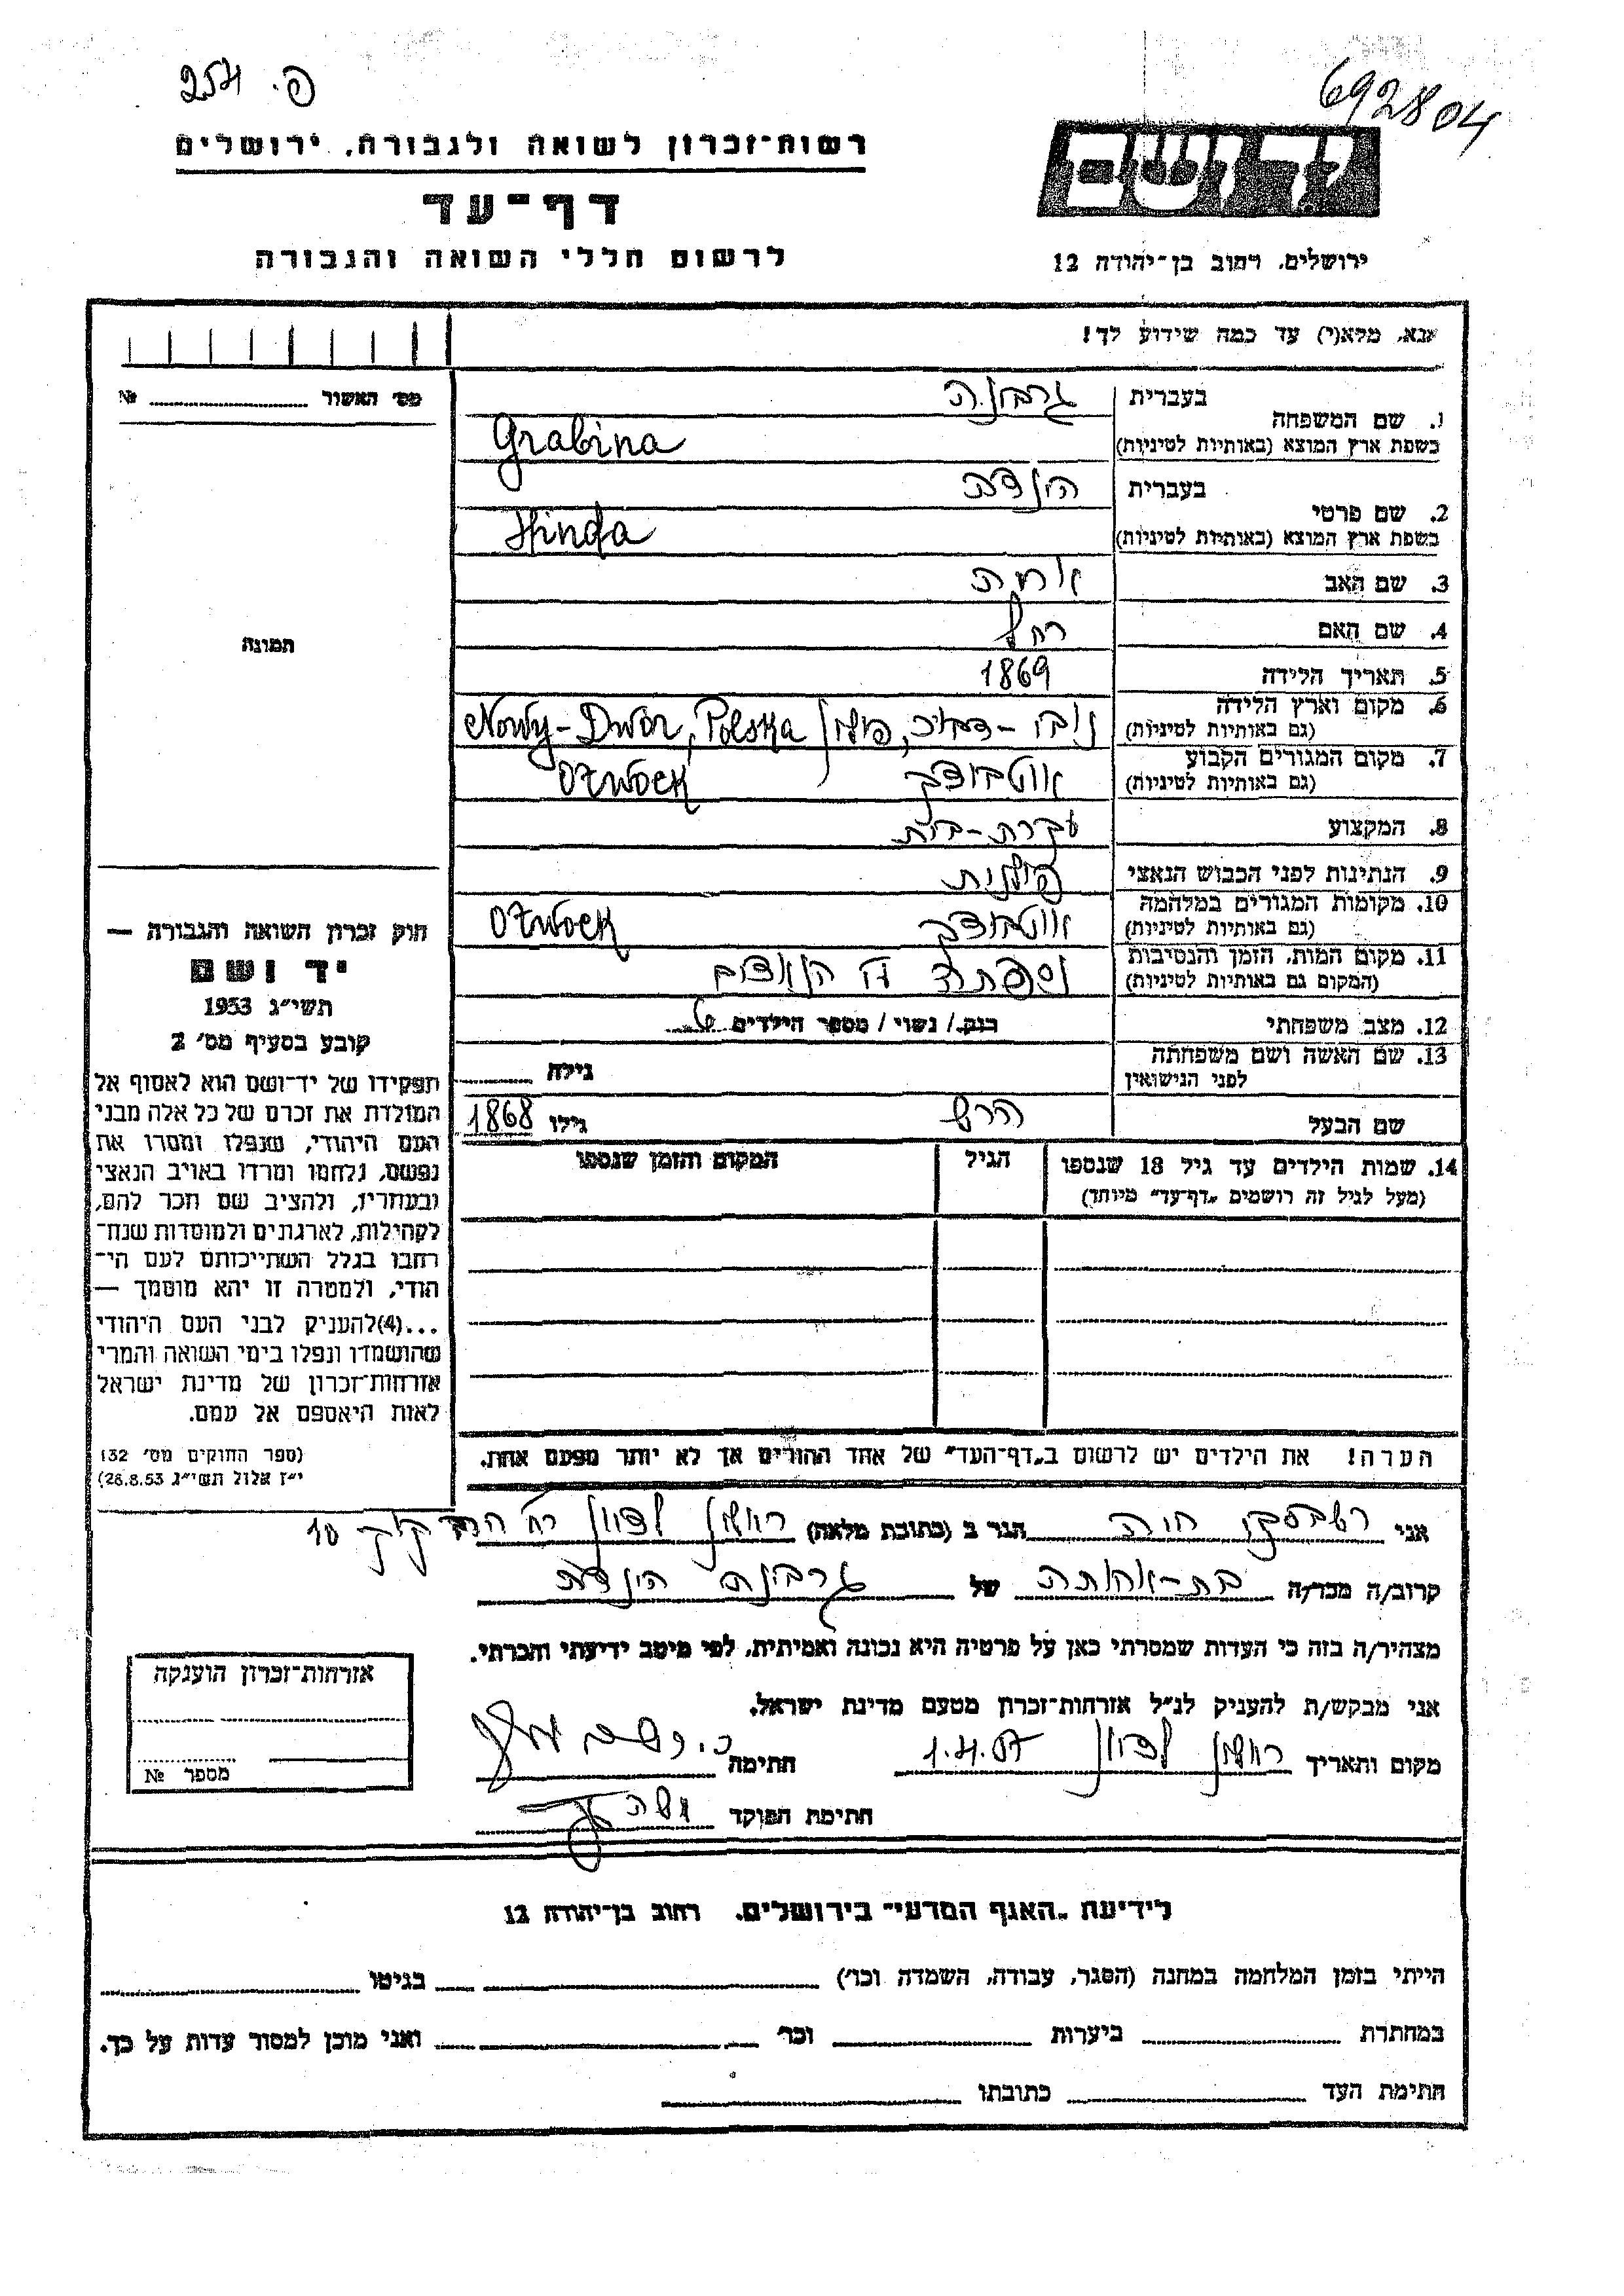 פ. 254
692804
רשות־זכרון לשואה ולגבורה, ירושלים
יד ושם
דף־עד
לרשום חללי השואה והגבורה
ירושלים, רחוב בן־יהודה 12
אנא, מלא(י) עד כמה שידוע לך!
מס׳ האשור № 
1. שם המשפחה
בעברית גרבינה
בשפת ארץ המוצא (באותיות לטיניות) Grabina
2. שם פרטי
בעברית הינדה
בשפת ארץ המוצא (באותיות לטיניות) Hinda
3. שם האב
4. שם האם רחל
5. תאריך הלידה 1869
6. מקום וארץ הלידה
(גם באותיות לטיניות) פולין Nowy-Dwór, Polska
7. מקום המגורים הקבוע
(גם באותיות לטיניות) אוטבוצק Otwock
8. המקצוע עקרת-בית
9. הנתינות לפני הכבוש הנאצי פולנית
10. מקומות המגורים במלחמה
(גם באותיות לטיניות) אוטבוצק Otwock
11. מקום המות, הזמן והנסיבות
(המקום גם באותיות לטיניות)
12. מצב משפחתי רווק / נשוי / מספר הילדים
13. שם האשה ושם משפחתה
לפני הנישואין גילה
שם הבעל הרש גילו 1868
14. שמות הילדים עד גיל 18 שנספו הגיל המקום והזמן שנספו
(מעל לגיל זה רושמים „דף־עד״ מיוחד)
הערה! את הילדים יש לרשום ב„דף־העד״ של אחד ההורים אך לא יותר מפעם אחת.
תמונה
חוק זכרון השואה והגבורה —
יד ושם
תשי״ג 1953
קובע בסעיף מס׳ 2
תפקידו של יד־ושם הוא לאסוף אל
המולדת את זכרם של כל אלה מבני
העם היהודי, שנפלו ומסרו את
נפשם, נלחמו ומרדו באויב הנאצי
ובעוזריו, ולהציב שם וזכר להם,
לקהילות, לארגונים ולמוסדות שנח־
רבו בגלל השתייכותם לעם הי־
הודי, ולמטרה זו יהא מוסמך —
...(4) להעניק לבני העם היהודי
שהושמדו ונפלו בימי השואה והמרי
אזרחות־זכרון של מדינת ישראל
לאות היאספם אל עמם.
(ספר החוקים מס׳ 132
י״ז אלול תשי״ג 28.8.53)
אני חוה הגר ב (כתובת מלאה) ראשון לציון רח׳ הרב קוק 10
קרוב/ה מכר/ה בת-אחותה של גרבינה הינדה
מצהיר/ה בזה כי העדות שמסרתי כאן על פרטיה היא נכונה ואמיתית, לפי מיטב ידיעתי והכרתי.
אני מבקש/ת להעניק לנ״ל אזרחות־זכרון מטעם מדינת ישראל.
מקום ותאריך ראשון לציון חתימה
חתימת הפוקד
אזרחות־זכרון הוענקה
מספר №
לידיעת „האגף המדעי״ בירושלים, רחוב בן־יהודה 12
הייתי בזמן המלחמה במחנה (הסגר, עבודה, השמדה וכו׳) בגיטו
במחתרת ביערות וכו׳ ואני מוכן למסור עדות על כך.
חתימת העד כתובתו